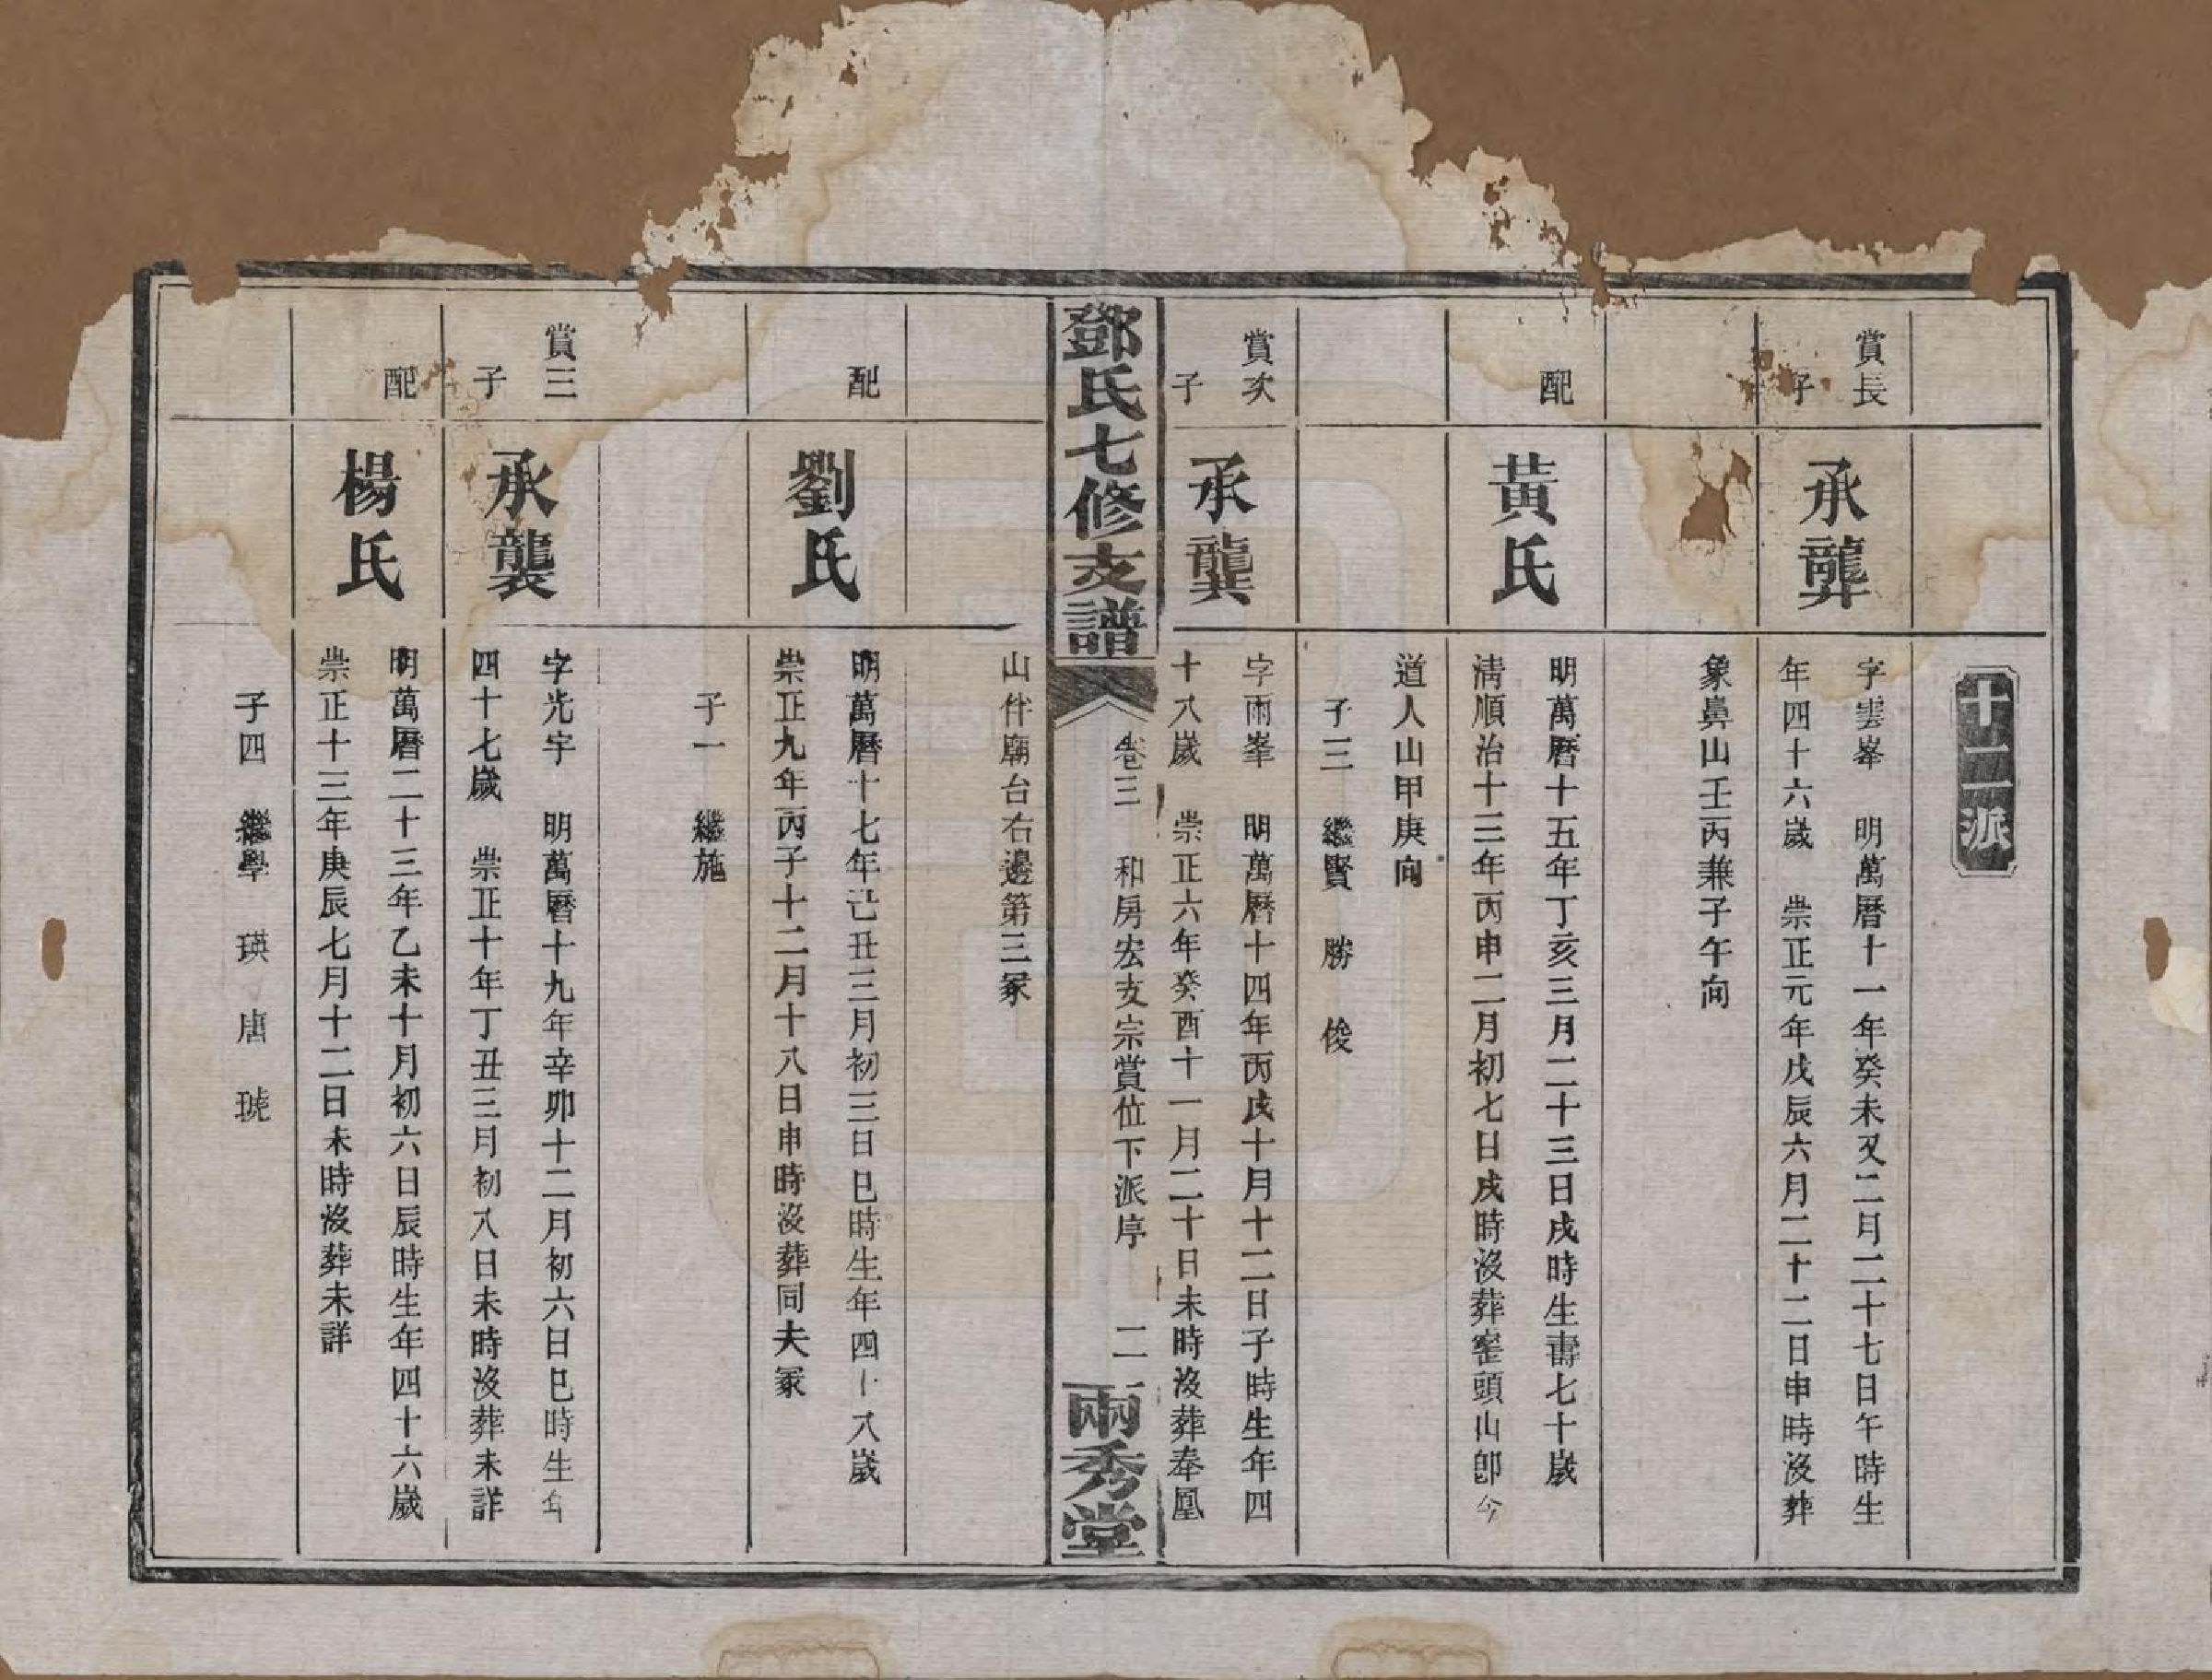 十二派
賞長
子
承龏
字雲峯　明萬曆十一年癸未又二月二十七日午時生
年四十六歲　崇正元年戊辰六月二十二日申時沒葬
象鼻山壬丙兼子午向
配
黃氏
明萬曆十五年丁亥三月二十三日戌時生壽七十歲
清順治十三年丙申二月初七日戌時沒葬窰頭山卽今
道人山甲庚向
子三　繼賢　勝　俊
賞次
子
承龔
字雨峯　明萬曆十四年丙戌十月十二日子時生年四
十八歲　崇正六年癸酉十一月二十日未時沒葬奉凰
鄧氏七修支譜
卷三　和房宏支宗賞位下派序　二
兩秀堂
山件廟台右邊第三冢
配
劉氏
明萬曆十七年己丑三月初三日巳時生年四十八歲
崇正九年丙子十二月十八日申時沒葬同夫冢
子一　繼施
賞三
子
承襲
字光宇　明萬曆十九年辛卯十二月初六日巳時生年
四十七歲　崇正十年丁丑三月初八日未時沒葬未詳
配
楊氏
明萬曆二十三年乙未十月初六日辰時生年四十六歲
崇正十三年庚辰七月十二日未時沒葬未詳
子四　繼學　瑛　唐　琥